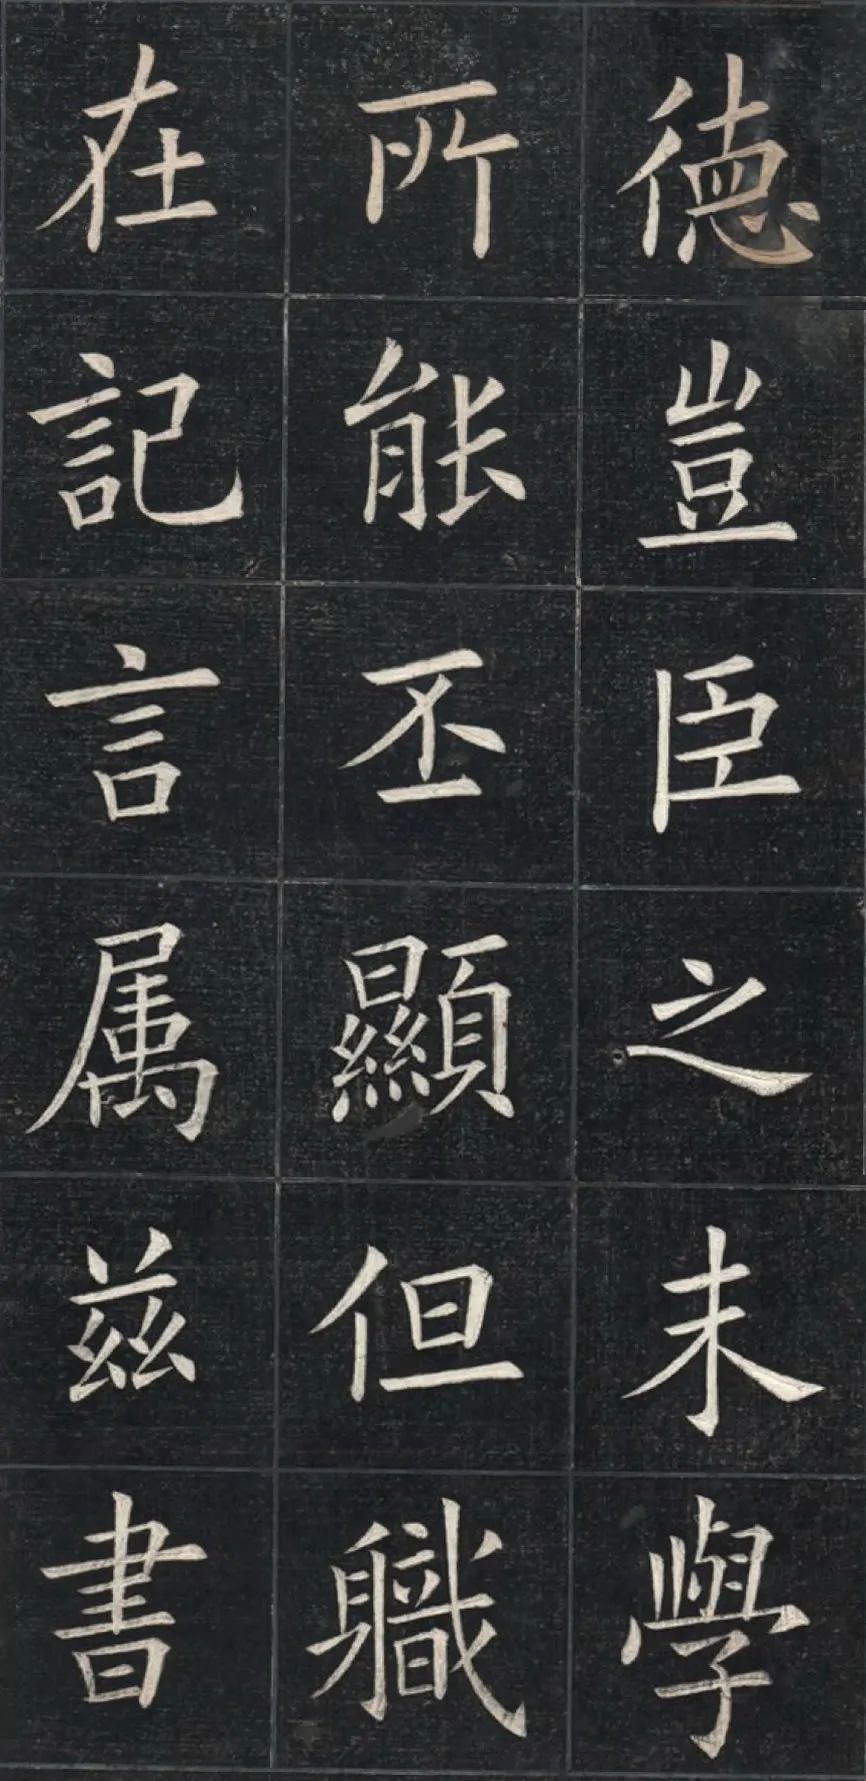 德豈臣之末學
所能丕顯但軄
在記言属茲書